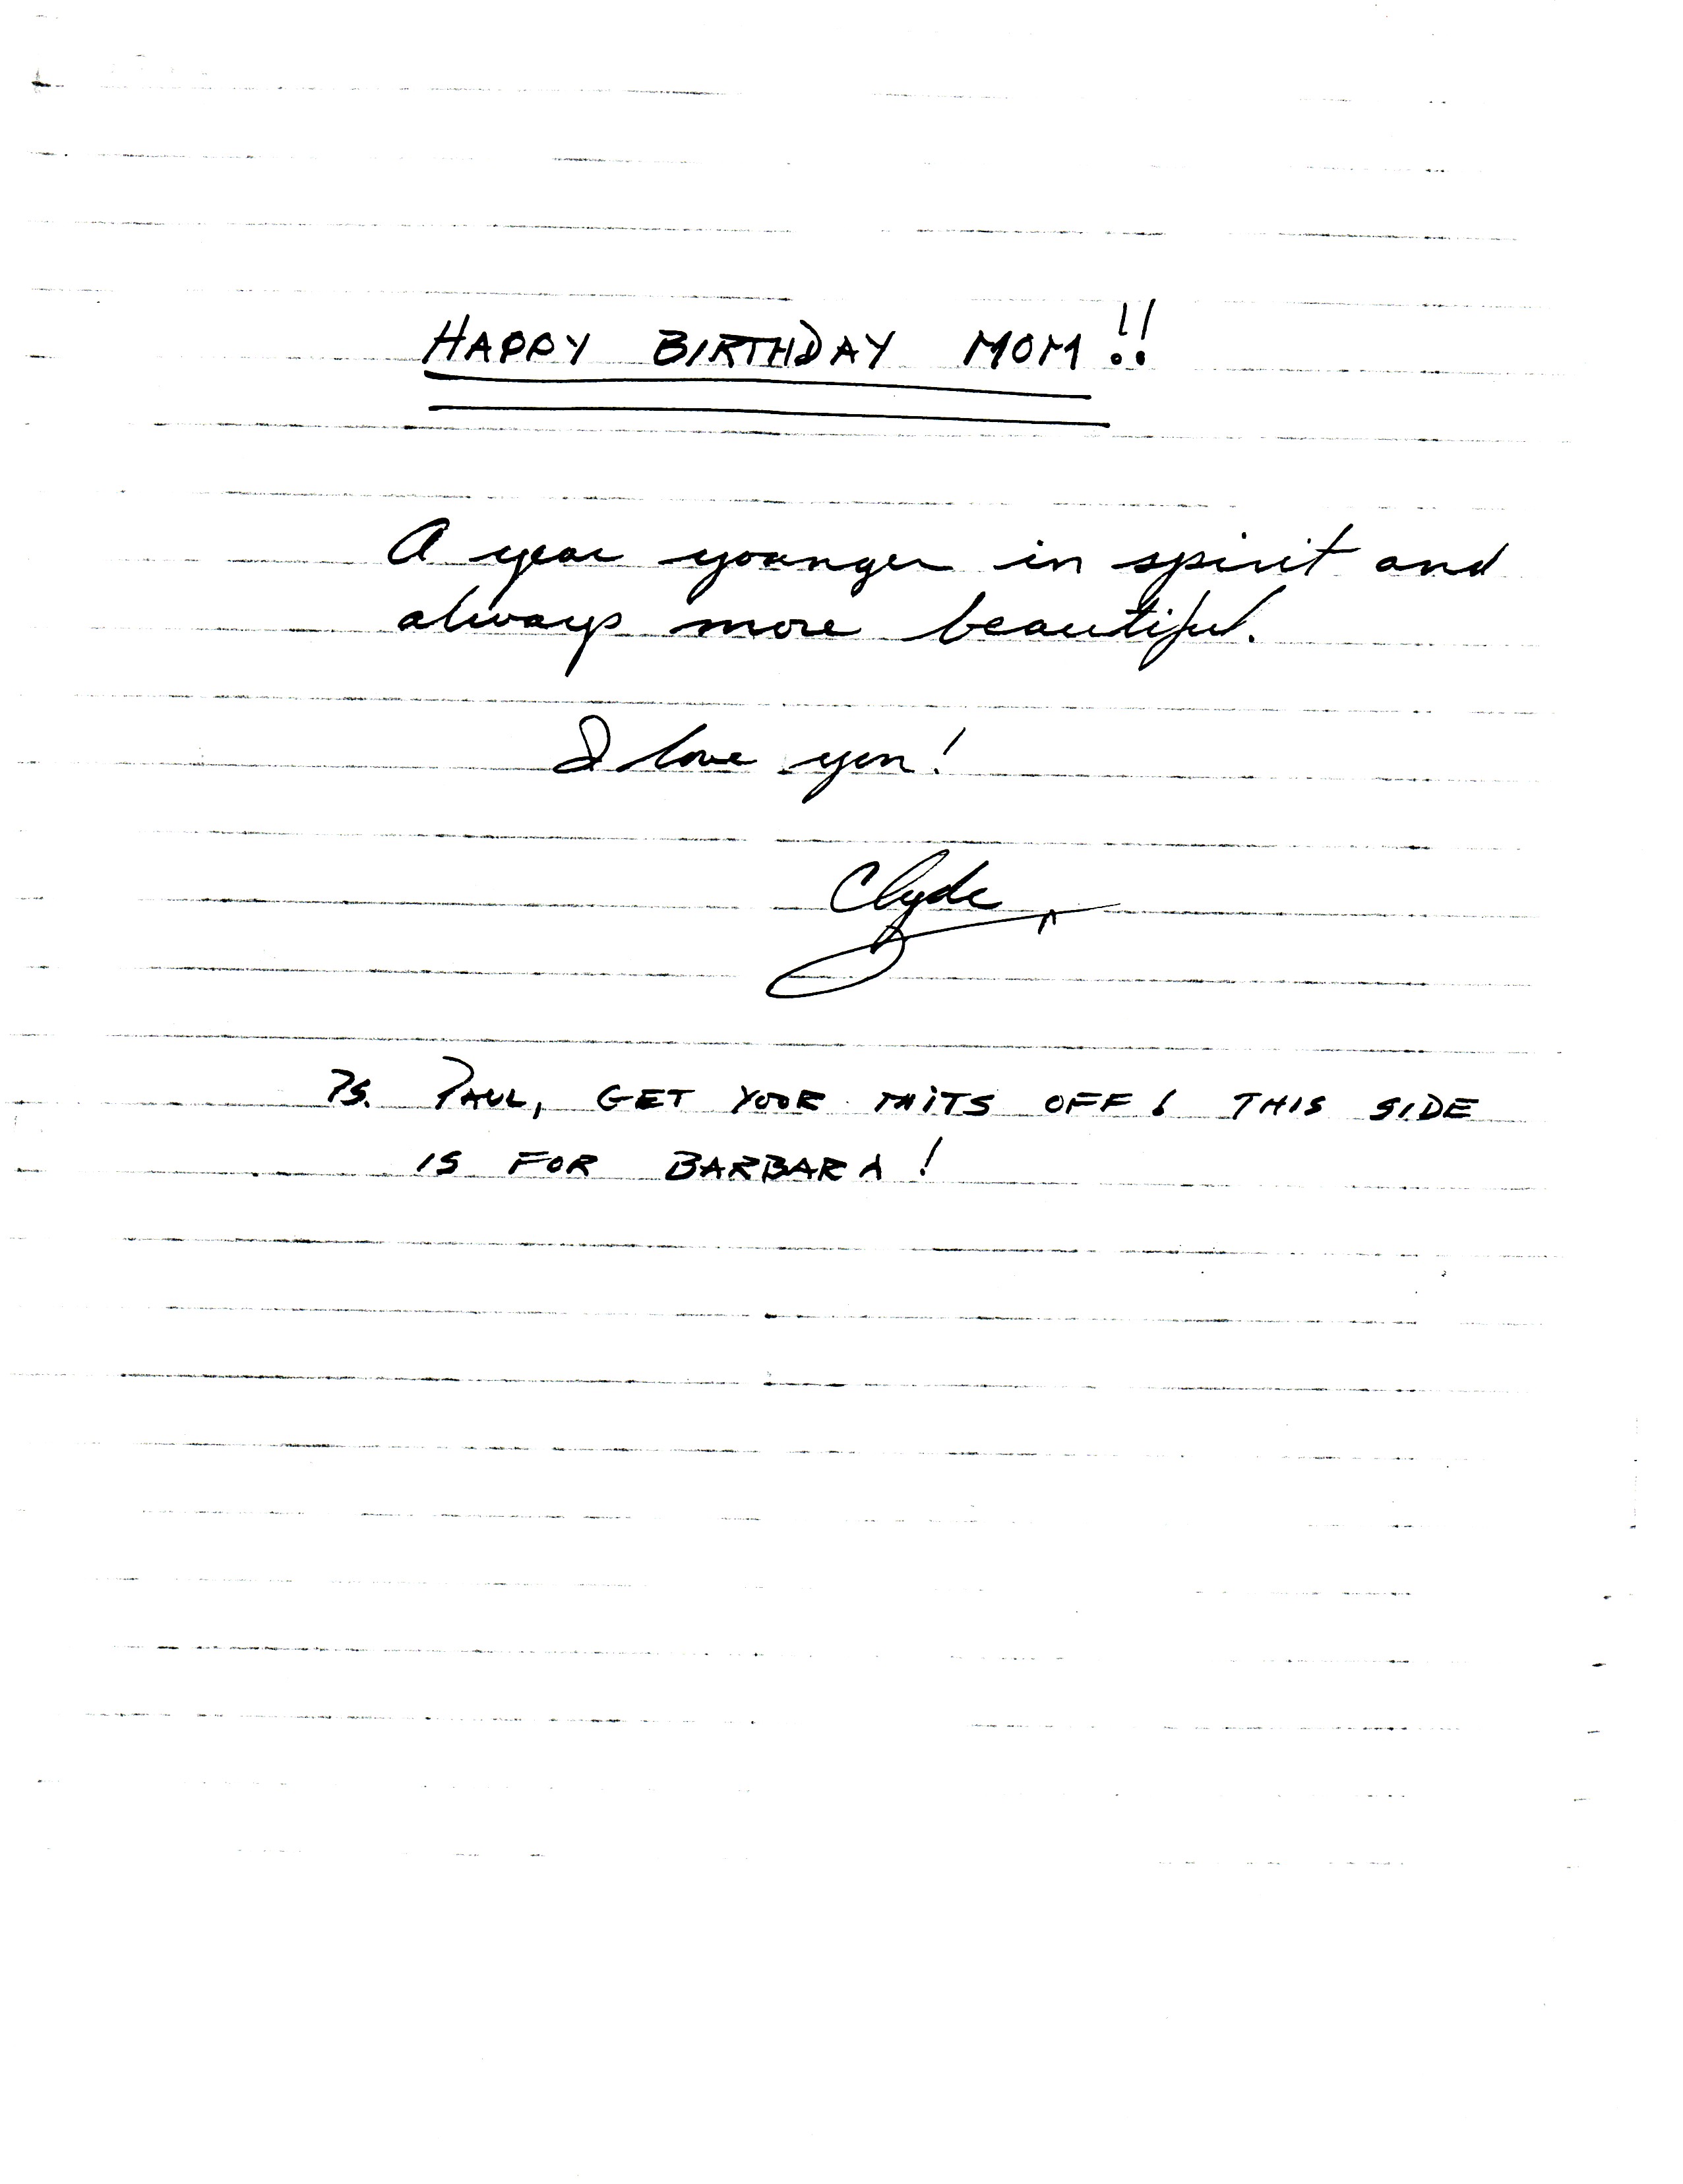 HAPPY BIRTHDAY MOM!!
A year younger in spirit and
always more beautiful.
I love you!
Clyde
PS. PAUL, GET YOUR MITS OFF! THIS SIDE
IS FOR BARBARA!